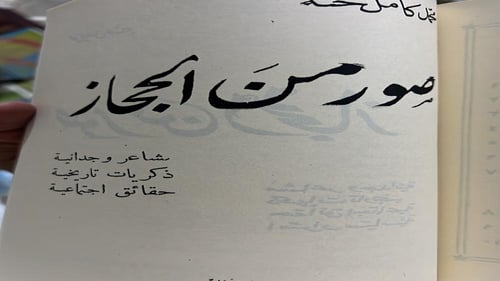 محمد كامل حته
صور من الحجاز
مشاعر وجدانية
ذكريات تاريخية
حقائق اجتماعية